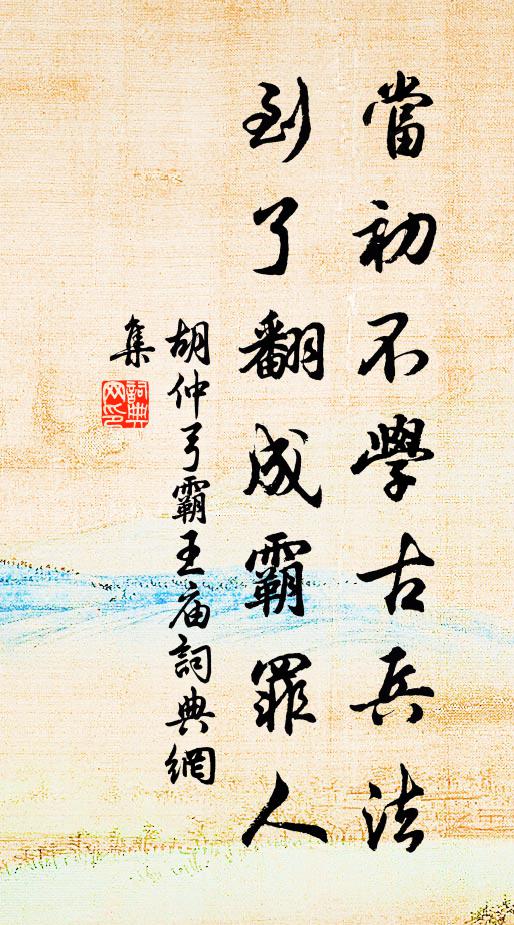 當初不學古兵法
到了翻成霸罪人
胡仲弓霸王庙詞典網
集
詞典
网印